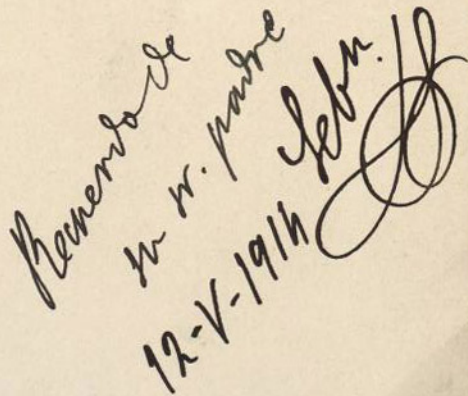 Recuerdo de
su sr. padre
12-V-1914